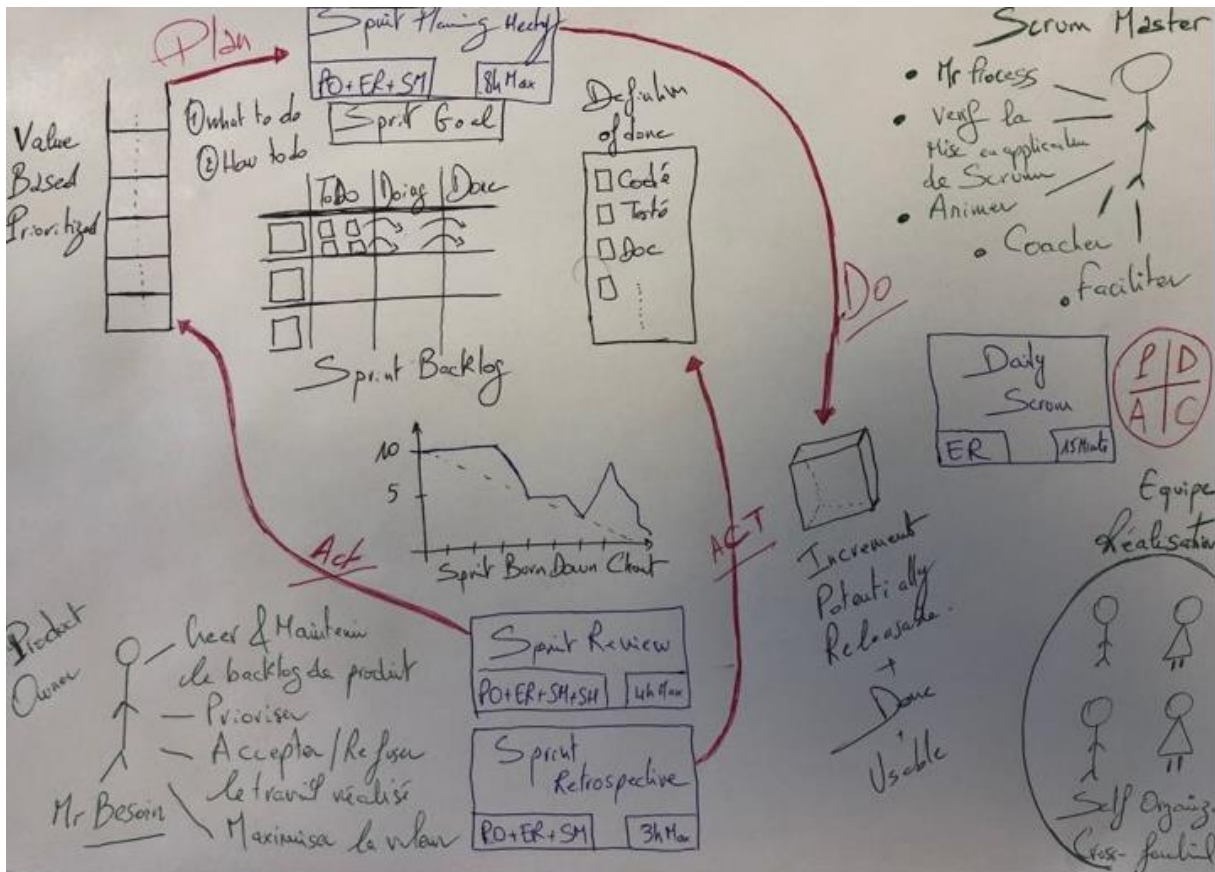 Plan
Sprit Planning Meetg
PO+ER+SM
8h Max
Sprit Goal
① what to do
② How to do
Value
Based
Prioritized
ToDo
Doing
Done
Sprint Backlog
Definition
of done
Codé
Testé
Doc
DO
Scrum Master
• Mr Process
• Verif la
Mise en application
de Scrum
• Animer
• Coacher
• Faciliter
Daily
Scrum
ER
15 Minute
P D
A C
10
5
Sprit Born Down Chart
Act
ACT
Increment
Potentially
Releasable
+
Done
+
Usable
Equipe
Réalisation
Self Organiz
Cross-
Product
Owner
Creer & Maintenir
le backlog de produit
Prioriser
Accepter/Refuser
le travail réalisé
Maximiser la valeur
Mr Besoin
Sprint Review
PO+ER+SM+SH
4h Max
Sprint
Retrospective
PO+ER+SM
3h Max